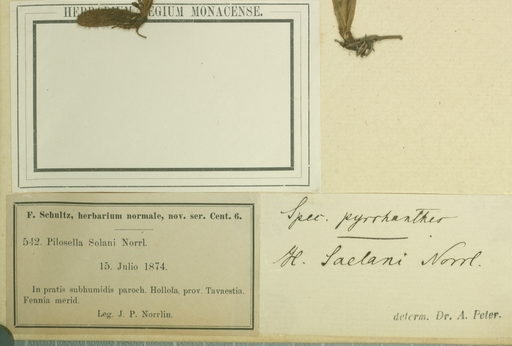 HERBARIUM REGIUM MONACENSE.
F. Schultz, herbarium normale, nov. ser. Cent. 6.
542. Pilosella Solani Norrl.
15. Julio 1874.
In pratis subhumidis paroch. Hollola, prov. Tavaestia.
Fennia merid.
Leg. J. P. Norrlin.
Spec. pyrrhanthes
H. Saelani Norrl.
determ. Dr. A. Peter.